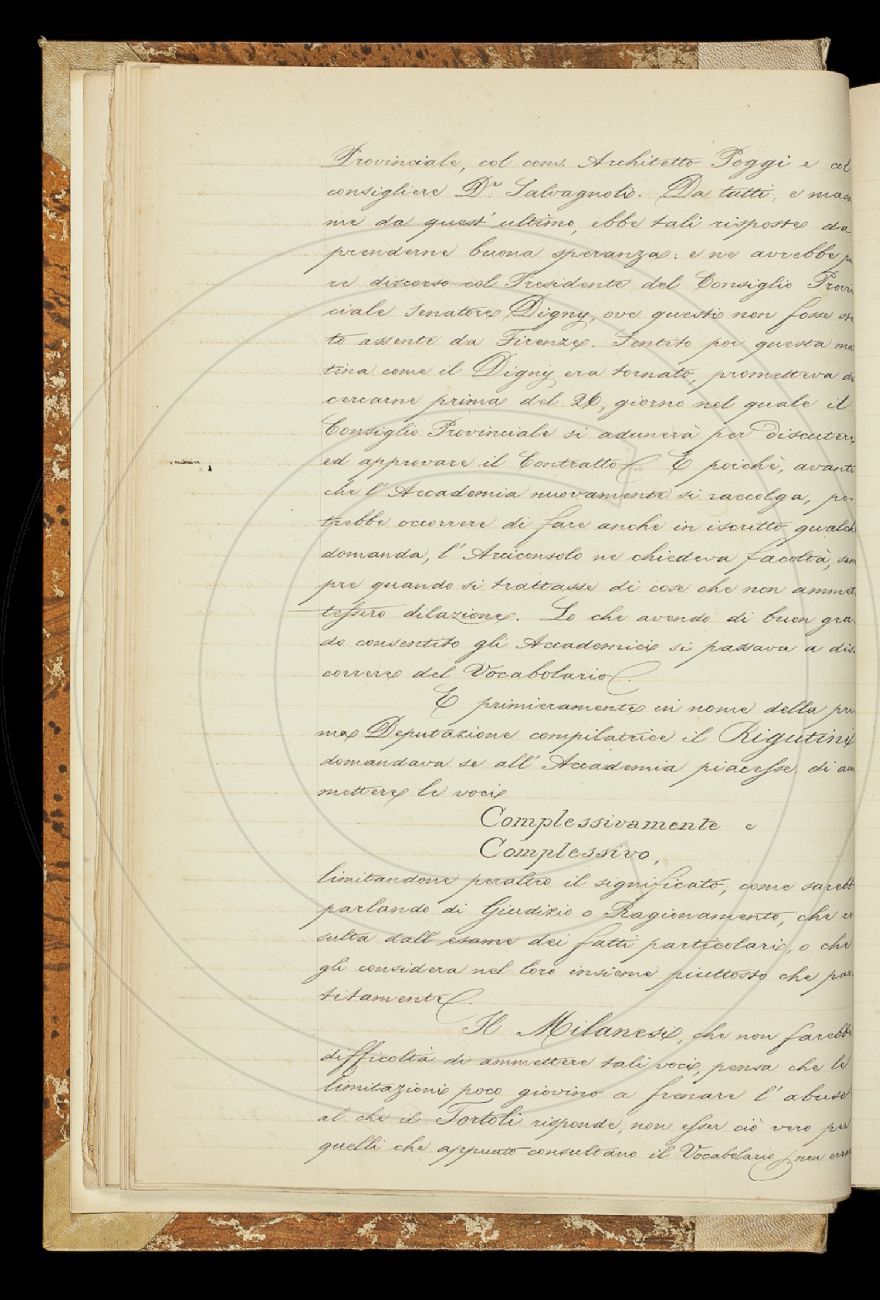 Provinciale, col cons. Architetto Poggi e col
consigliere D.r Salvagnoli. Da tutti, e massi
me da quest' ultimo, ebbe tali risposte da
prenderne buona speranza: e ne avrebbe pu
re discorso col Presidente del Consiglio Provin
ciale Senatore Digny, ove questi non fosse sta
to assente da Firenze. Sentito poi questa mat
tina come il Digny era tornato, prometteva di
cercarne prima del 26, giorno nel quale il
Consiglio Provinciale si adunerà per discutere
ed approvare il Contratto. E poichè, avanti
che l' Accademia nuovamente si raccolga, po-
trebbe occorrere di fare anche in iscritto qualche
domanda, l' Arciconsolo ne chiedeva facoltà, sem
pre quando si trattasse di cose che non ammet
tessero dilazione. Lo che avendo di buon gra-
do consentito gli Accademici si passava a dis-
correre del Vocabolario.
E primieramente in nome della pri-
ma Deputazione compilatrice il Rigutini
domandava se all' Accademia piacesse di am
mettere le voci
Complessivamente e
Complessivo,
limitandone peraltro il significato, come sarebbe
parlando di Giudizio o Ragionamento, che ri
sulta dall' esame dei fatti particolari, o che
gli considera nel loro insieme piuttosto che par-
titamente.
Il Milanesi, che non farebbe
difficoltà di ammettere tali voci, pensa che le
limitazioni poco giovino a frenare l' abuso
al che il Tortoli risponde, non esser ciò vero per
quelli che appunto consultano il Vocabolario, non